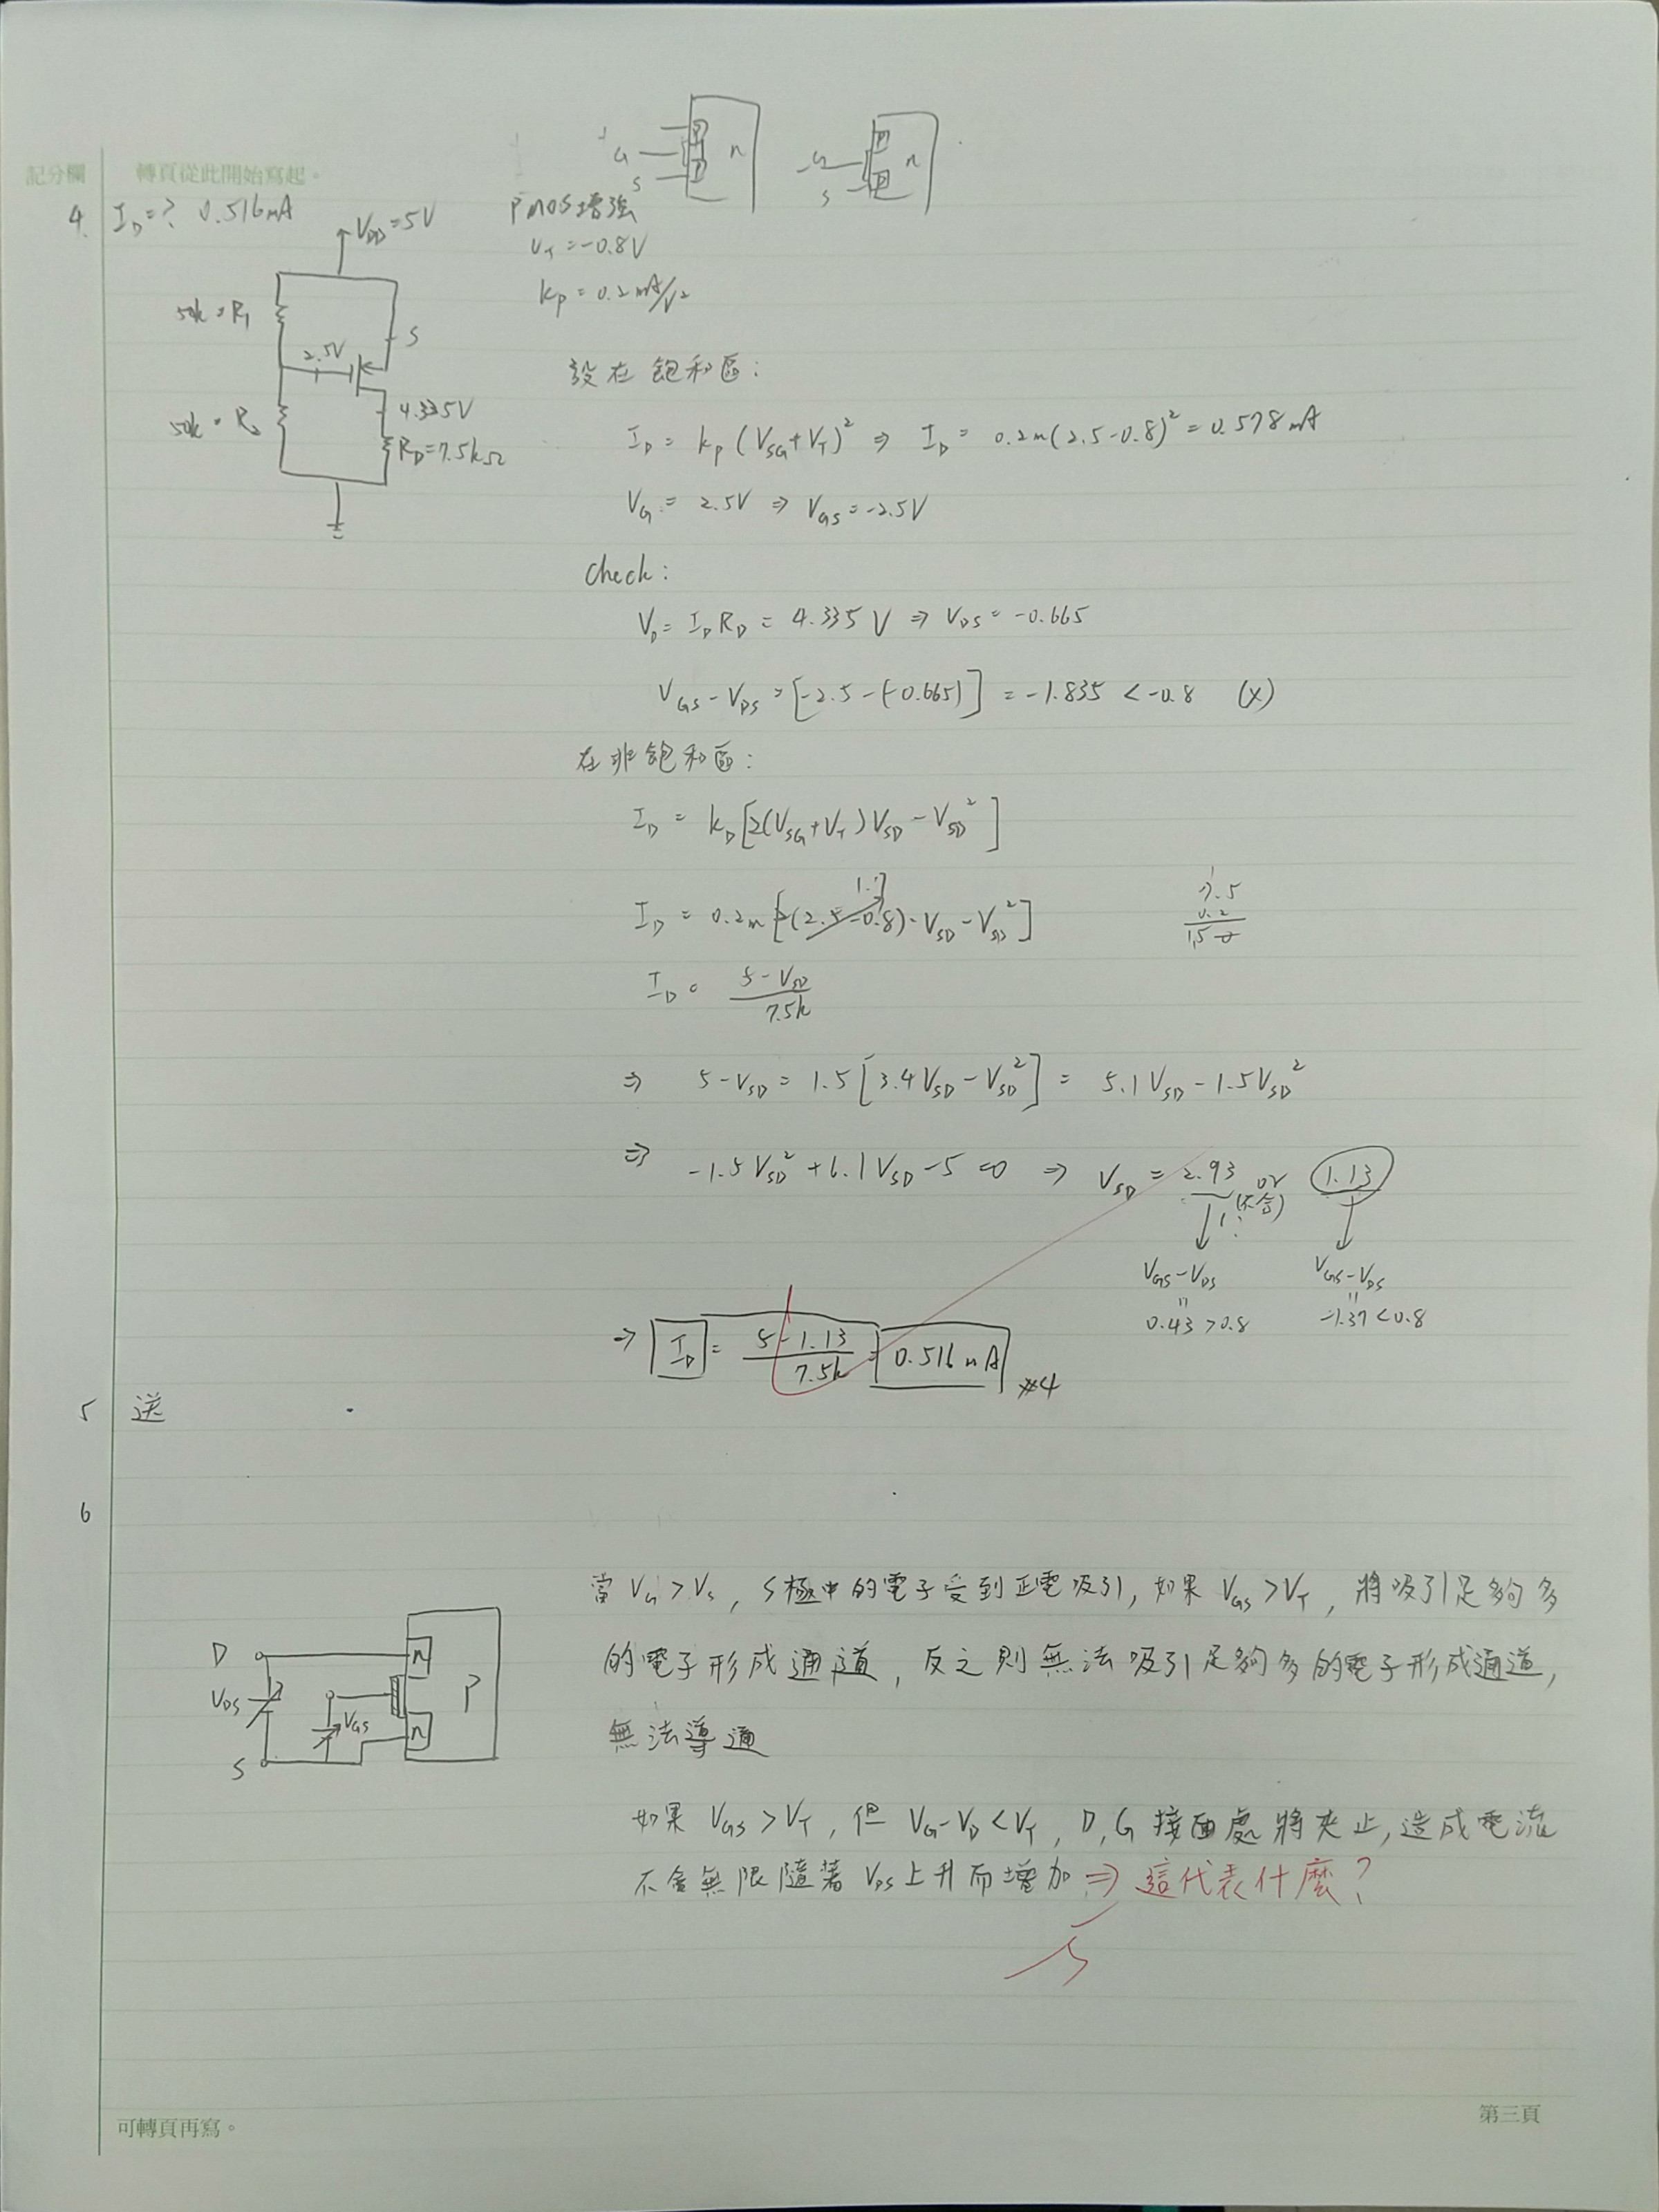 記分欄 轉頁從此開始寫起。
4. I_D=? 0.516mA
V_DD=5V
50k=R₁
2.5V
S
4.335V
R_D=7.5kΩ
G
S
n
G
S
P
P
n
PMOS增強
V_T=-0.8V
k_p=0.2mA/V²
設在飽和區:
I_D = k_p(V_SG+V_T)² ⇒ I_D = 0.2m(2.5-0.8)²=0.578mA
V_G = 2.5V ⇒ V_GS=-2.5V
check:
V_D= I_D R_D = 4.335V ⇒ V_DS=-0.665
V_GS-V_DS=[-2.5-(-0.665)]=-1.835<-0.8 (X)
在非飽和區:
I_D = k_p[2(V_SG+V_T)V_SD-V_SD²]
1.7
I_D = 0.2m[2(2.5-0.8)·V_SD-V_SD²]
7.5
0.2
1.50
I_D = (5-V_SD)/7.5k
⇒ 5-V_SD = 1.5[3.4V_SD-V_SD²] = 5.1V_SD-1.5V_SD²
⇒ -1.5V_SD²+6.1V_SD-5=0 ⇒ V_SD=2.93 or 1.13
(不合)
V_GS-V_DS = 0.43>0.8
V_GS-V_DS = -1.37<0.8
⇒ I_D = (5-1.13)/7.5k = 0.516mA #4
5 送
6
當 V_G>V_S, S極中的電子受到正電吸引, 如果 V_GS>V_T, 將吸引足夠多
的電子形成通道, 反之則無法吸引足夠多的電子形成通道,
無法導通
D
V_DS
V_GS
S
n
n
P
如果 V_GS>V_T, 但 V_G-V_D<V_T, D,G接面處將夾止, 造成電流
不會無限隨著 V_DS上升而增加 ⇒ 這代表什麼?
5
可轉頁再寫。
第三頁